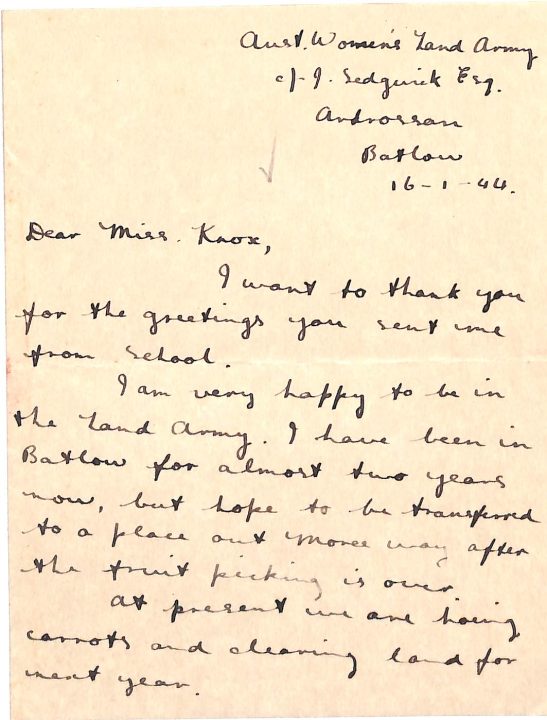 Aust. Women's Land Army
c/- J. Sedgwick Esq.
Androssan
Batlow
16-1-44.
Dear Miss. Knox,
I want to thank you
for the greetings you sent me
from School.
I am very happy to be in
the Land Army. I have been in
Batlow for almost two years
now, but hope to be transferred
to a place out Moree way after
the fruit picking is over.
At present we are hoeing
carrots and clearing land for
next year.